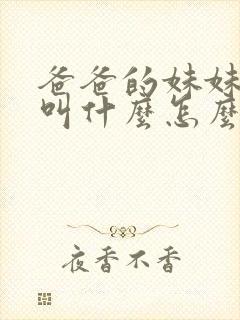 爸爸的妹妹
叫什麼怎麼
夜香不香